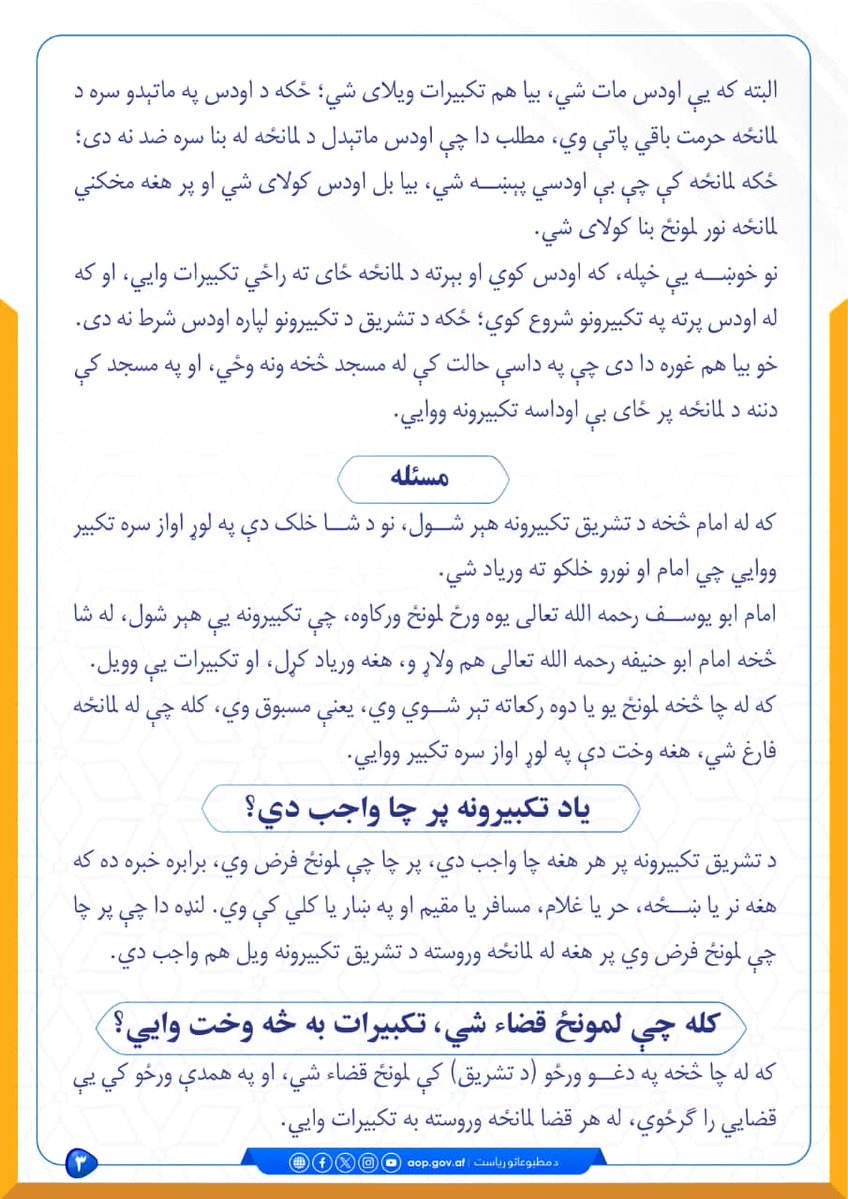 البته که یې اودس مات شي، بیا هم تکبیرات ویلای شي؛ ځکه د اودس په ماتېدو سره د
لمانځه حرمت باقي پاتې وي، مطلب دا چې اودس ماتېدل د لمانځه له بنا سره ضد نه دی؛
ځکه لمانځه کې چې بې اودسي پېښه شي، بیا بل اودس کولای شي او پر هغه مخکني
لمانځه نور لمونځ بنا کولای شي.
نو خوښه یې خپله، که اودس کوي او بېرته د لمانځه ځای ته راځي تکبیرات وایي، او که
له اودس پرته په تکبیرونو شروع کوي؛ ځکه د تشریق د تکبیرونو لپاره اودس شرط نه دی.
خو بیا هم غوره دا دی چې په داسې حالت کې له مسجد څخه ونه وځي، او په مسجد کې
دننه د لمانځه پر ځای بې اوداسه تکبیرونه ووایي.
مسئله
که له امام څخه د تشریق تکبیرونه هېر شول، نو د شا خلک دې په لوړ اواز سره تکبیر
ووایي چي امام او نورو خلکو ته ورياد شي.
امام ابو یوسف رحمه الله تعالی یوه ورځ لمونځ ورکاوه، چې تکبیرونه یې هېر شول، له شا
څخه امام ابو حنیفه رحمه الله تعالی هم ولاړ و، هغه ورياد کړل، او تکبیرات یې وویل.
که له چا څخه لمونځ یو یا دوه رکعاته تېر شوي وي، یعنې مسبوق وي، کله چې له لمانځه
فارغ شي، هغه وخت دې په لوړ اواز سره تکبیر ووایي.
یاد تکبیرونه پر چا واجب دي؟
د تشریق تکبیرونه پر هر هغه چا واجب دي، پر چا چې لمونځ فرض وي، برابره خبره ده که
هغه نر یا ښځه، حر یا غلام، مسافر یا مقیم او په ښار یا کلي کې وي. لنډه دا چې پر چا
چې لمونځ فرض وي پر هغه له لمانځه وروسته د تشریق تکبیرونه ویل هم واجب دي.
کله چې لمونځ قضاء شي، تکبیرات به څه وخت وایي؟
که له چا څخه په دغو ورځو (د تشریق) کې لمونځ قضاء شي، او په همدې ورځو کي یې
قضایي را گرځوي، له هر قضا لمانځه وروسته به تکبیرات وایي.
د مطبوعاتو ریاست | aop.gov.af
۳